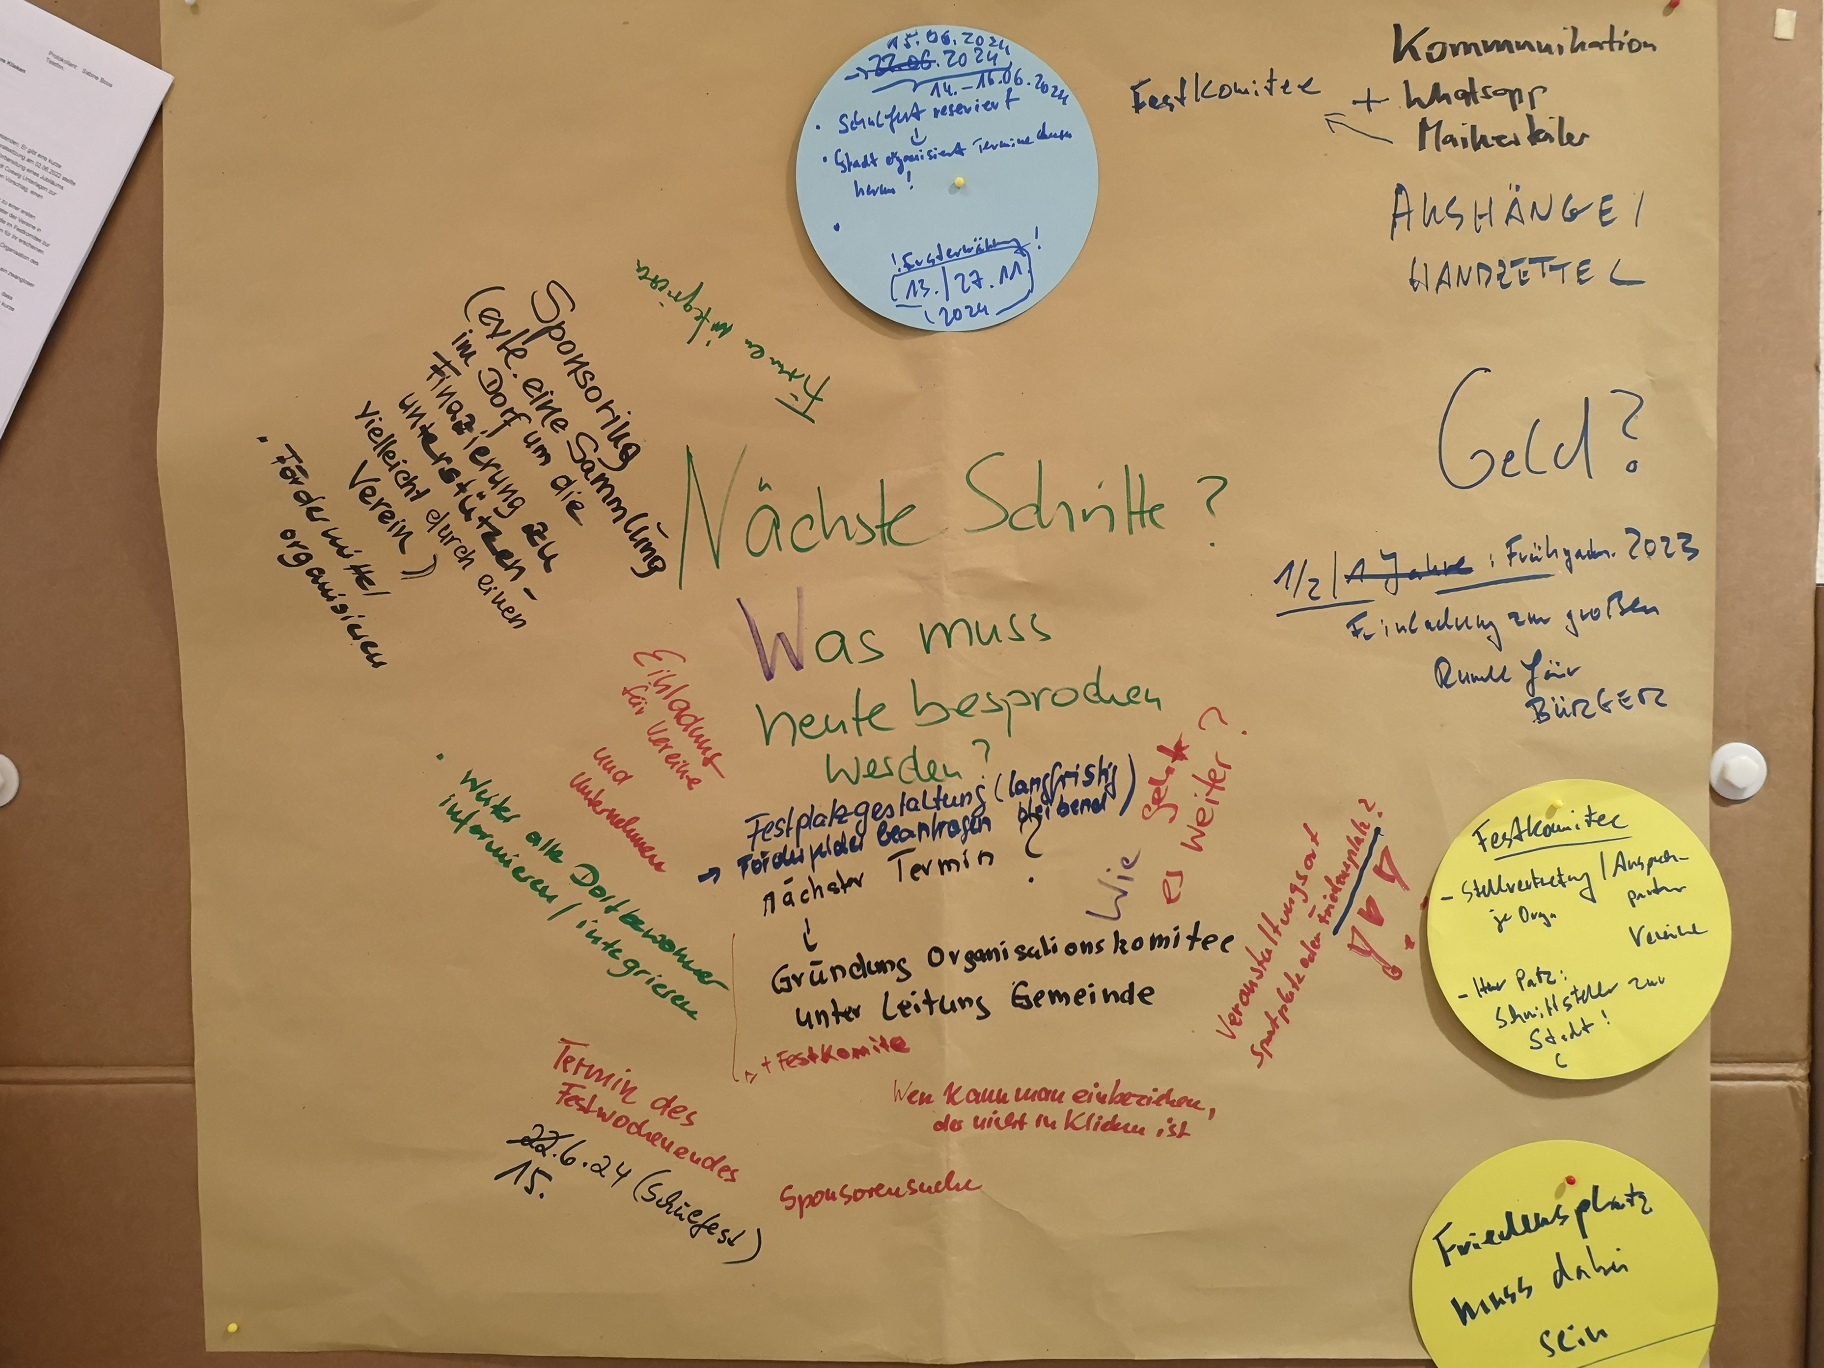 15.06.2024
→ 22.06.2024
14.-16.06.2024
• Schulfest reserviert
• Stadt organisiert Termine
herum!
•
! !
13./27.11.
2024
Kommunikation
Festkomitee + Whatsapp
Mailverteiler
AUSHÄNGE /
HANDZETTEL
Geld?
1/2 / 1 Jahre : Frühjahr 2023
Einladung zur großen
Runde für
BÜRGER
Firmen integrieren
Sponsoring
(evtl. eine Sammlung
im Dorf um die
Finazierung zu
unterstützen -
vielleicht durch einen
Verein)
• Fördermittel
organisieren
Nächste Schritte?
Was muss
heute besprochen
werden?
Einladung
für Vereine
und
Unternehmen
Festplatzgestaltung (langfristig
bleibend)
→ Fördergelder beantragen
nächster Termin ?
Gründung Organisationskomitee
unter Leitung Gemeinde
+ Festkomite
Wie geht
es weiter?
Veranstaltungsort
Sportplatz oder Friedensplatz?
• Weiter alle Dorfbewohner
informieren / integrieren
Termin des
Festwochenendes
22.6.24 (Schulfest)
15.
Wen kann man einbeziehen,
der nicht in Klieken ist
Sponsorensuche
Festkomitee
- Stellvertretung / Ansprech-
partner
je Orga
Vereine
- Herr Patz:
Schnittstelle zur
Stadt!
Friedensplatz
muss dabei
sein